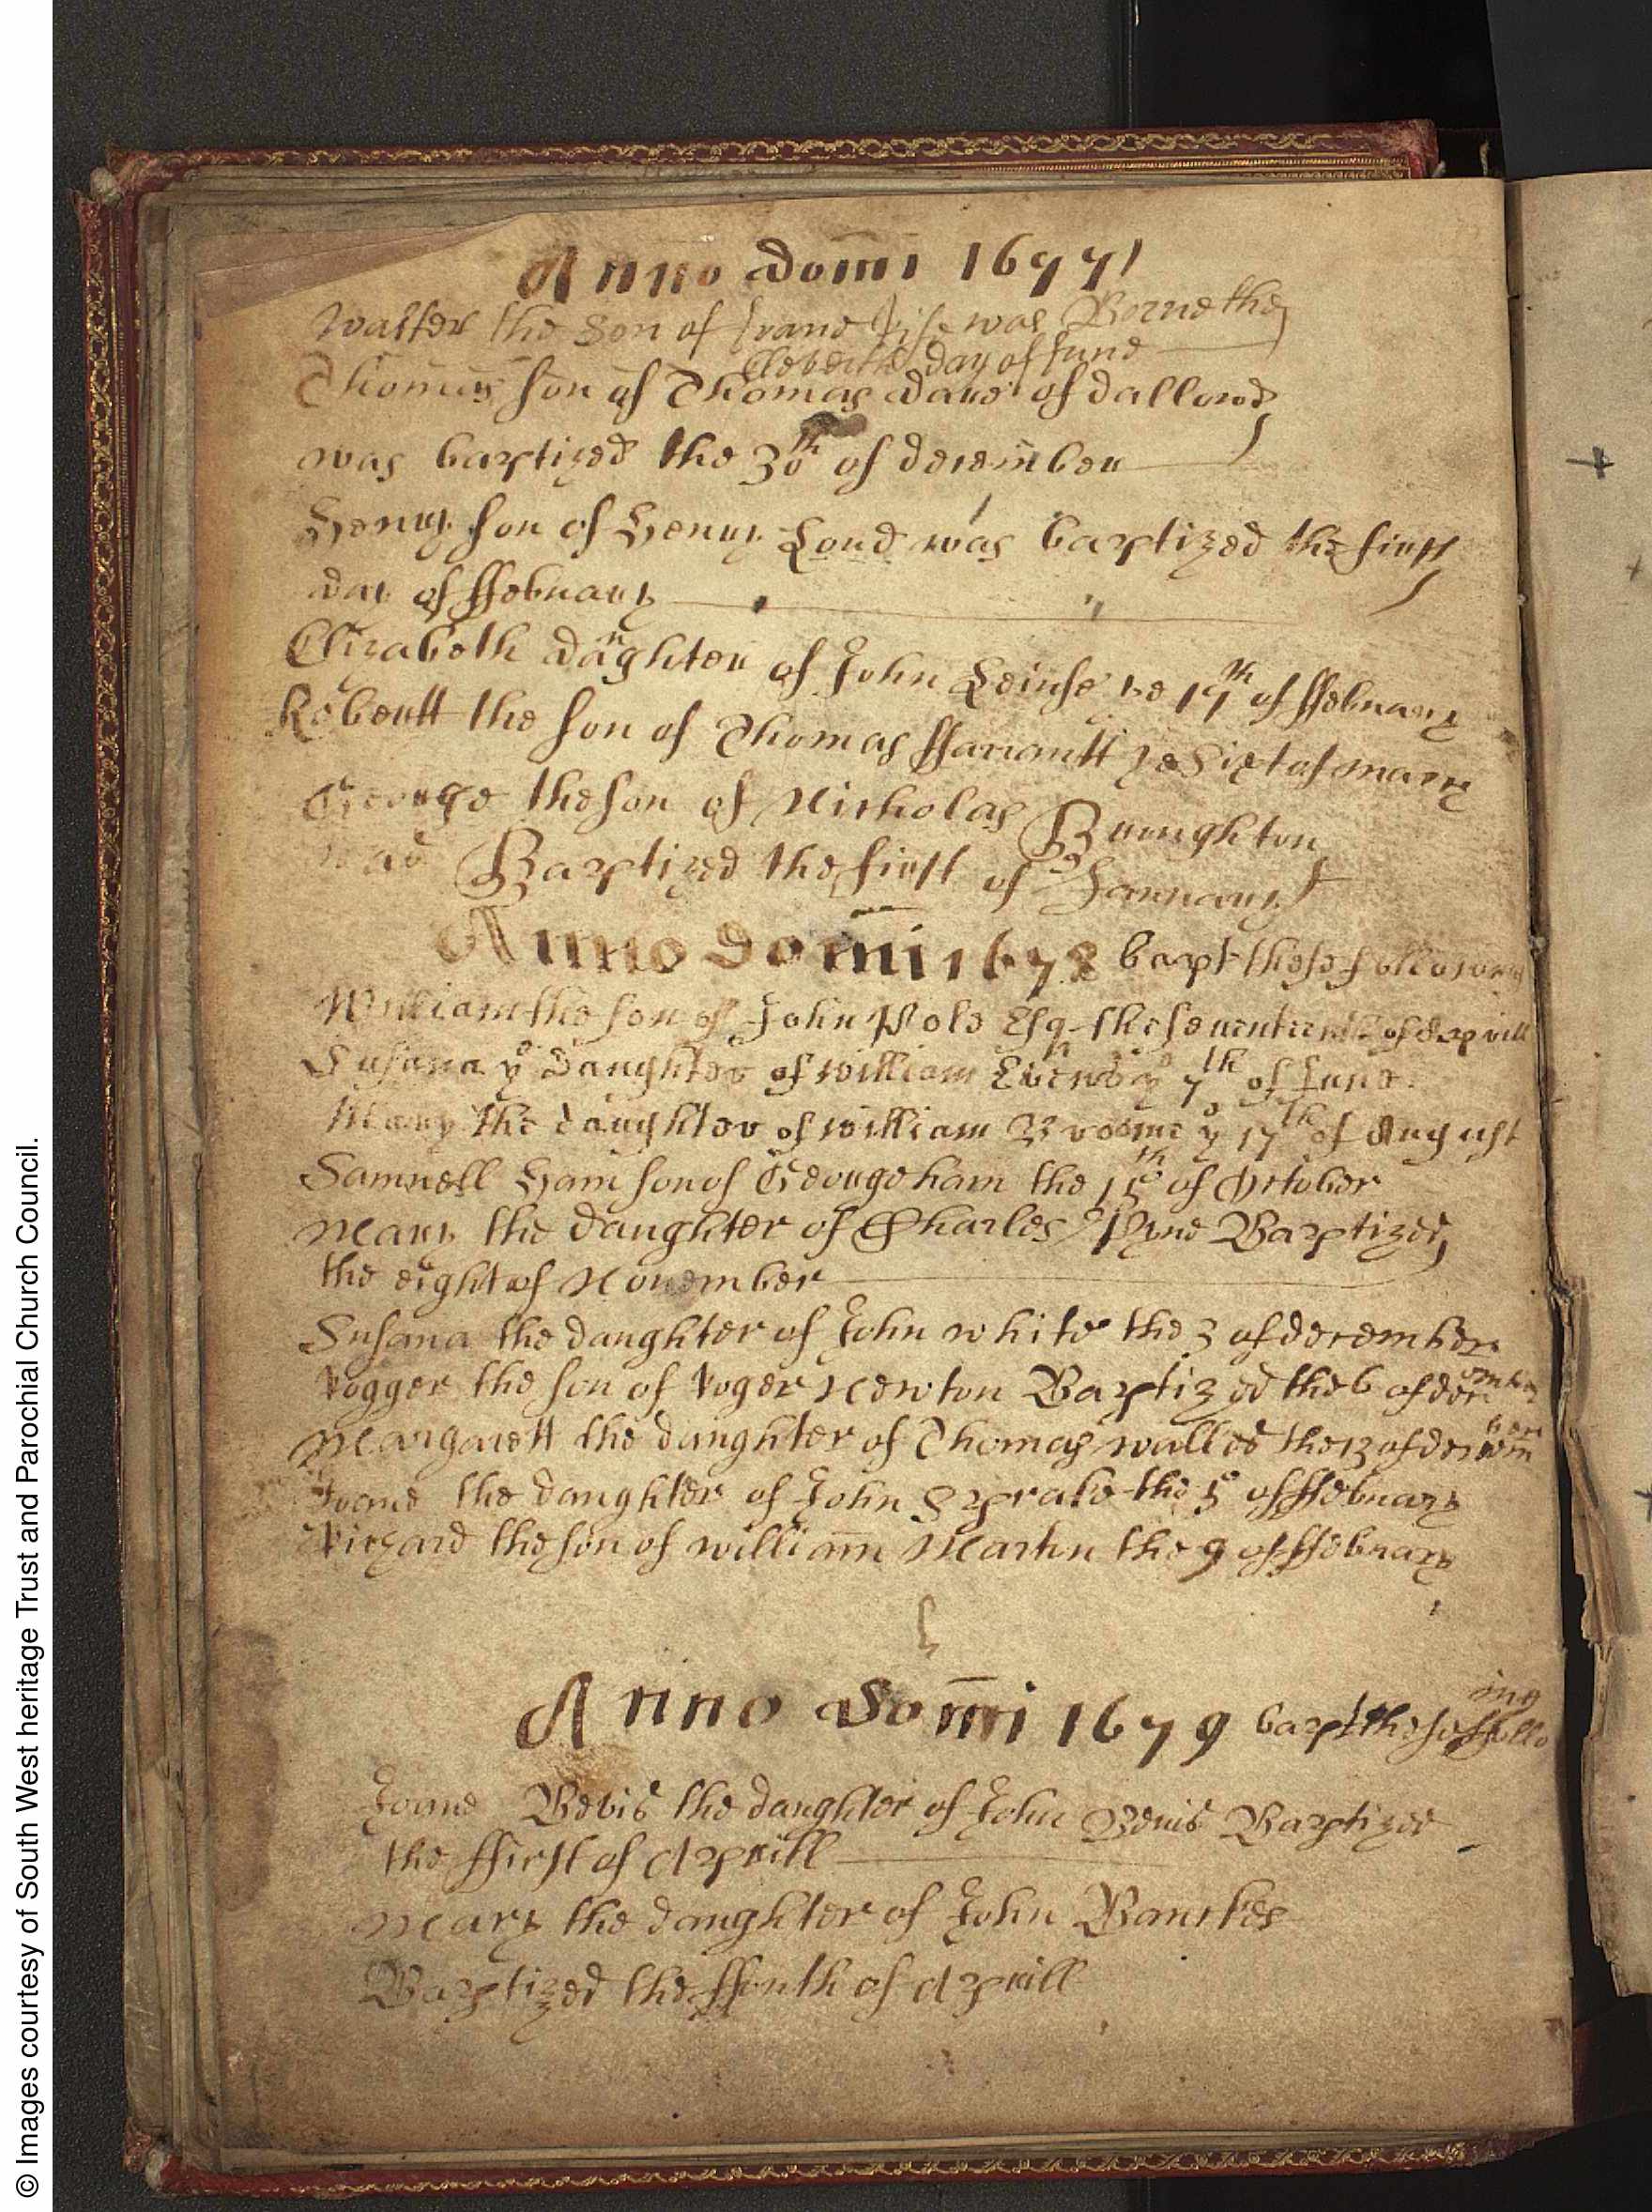 Anno Domi 1677
Walter the Son of was Borne the
day of June
Thomas son of Thomas Dare of dallowd
was baptized the 30th of december
Henry son of Henry Lond was baptized the first
day of ffebruary
Elizabeth daughter of John the 17th of ffebruary
Robertt the son of Thomas ye of
George the son of Nicholas Burughton
was Baptized the first of January
Anno Domi 1678 bapt these followeng
William the son of John Pole Esq the seuenteenth of Aprill
Susana ye daughter of William ye 7th of June
Mary the daughter of William Broome ye 17th of August
Samuell Ham son of George ham the 15th of October
Mary the daughter of Charles Pyne Baptized
the eight of Nouember
Susana the daughter of John white the 3 of december
Rogger the son of Roger Newton Baptized the 6 of december
Margarett the daughter of Thomas the 13 of december
Joane the daughter of John Sprake the 5 of ffebruary
Richard the son of William Martin the 9 of ffebruary
Anno Domi 1679 bapt these ffolloing
Joane Bevis the daughter of John Beuis Baptized
the ffirst of Aprill
Mary the daughter of John Banckes
Baptized the of Aprill
© Images courtesy of South West heritage Trust and Parochial Church Council.